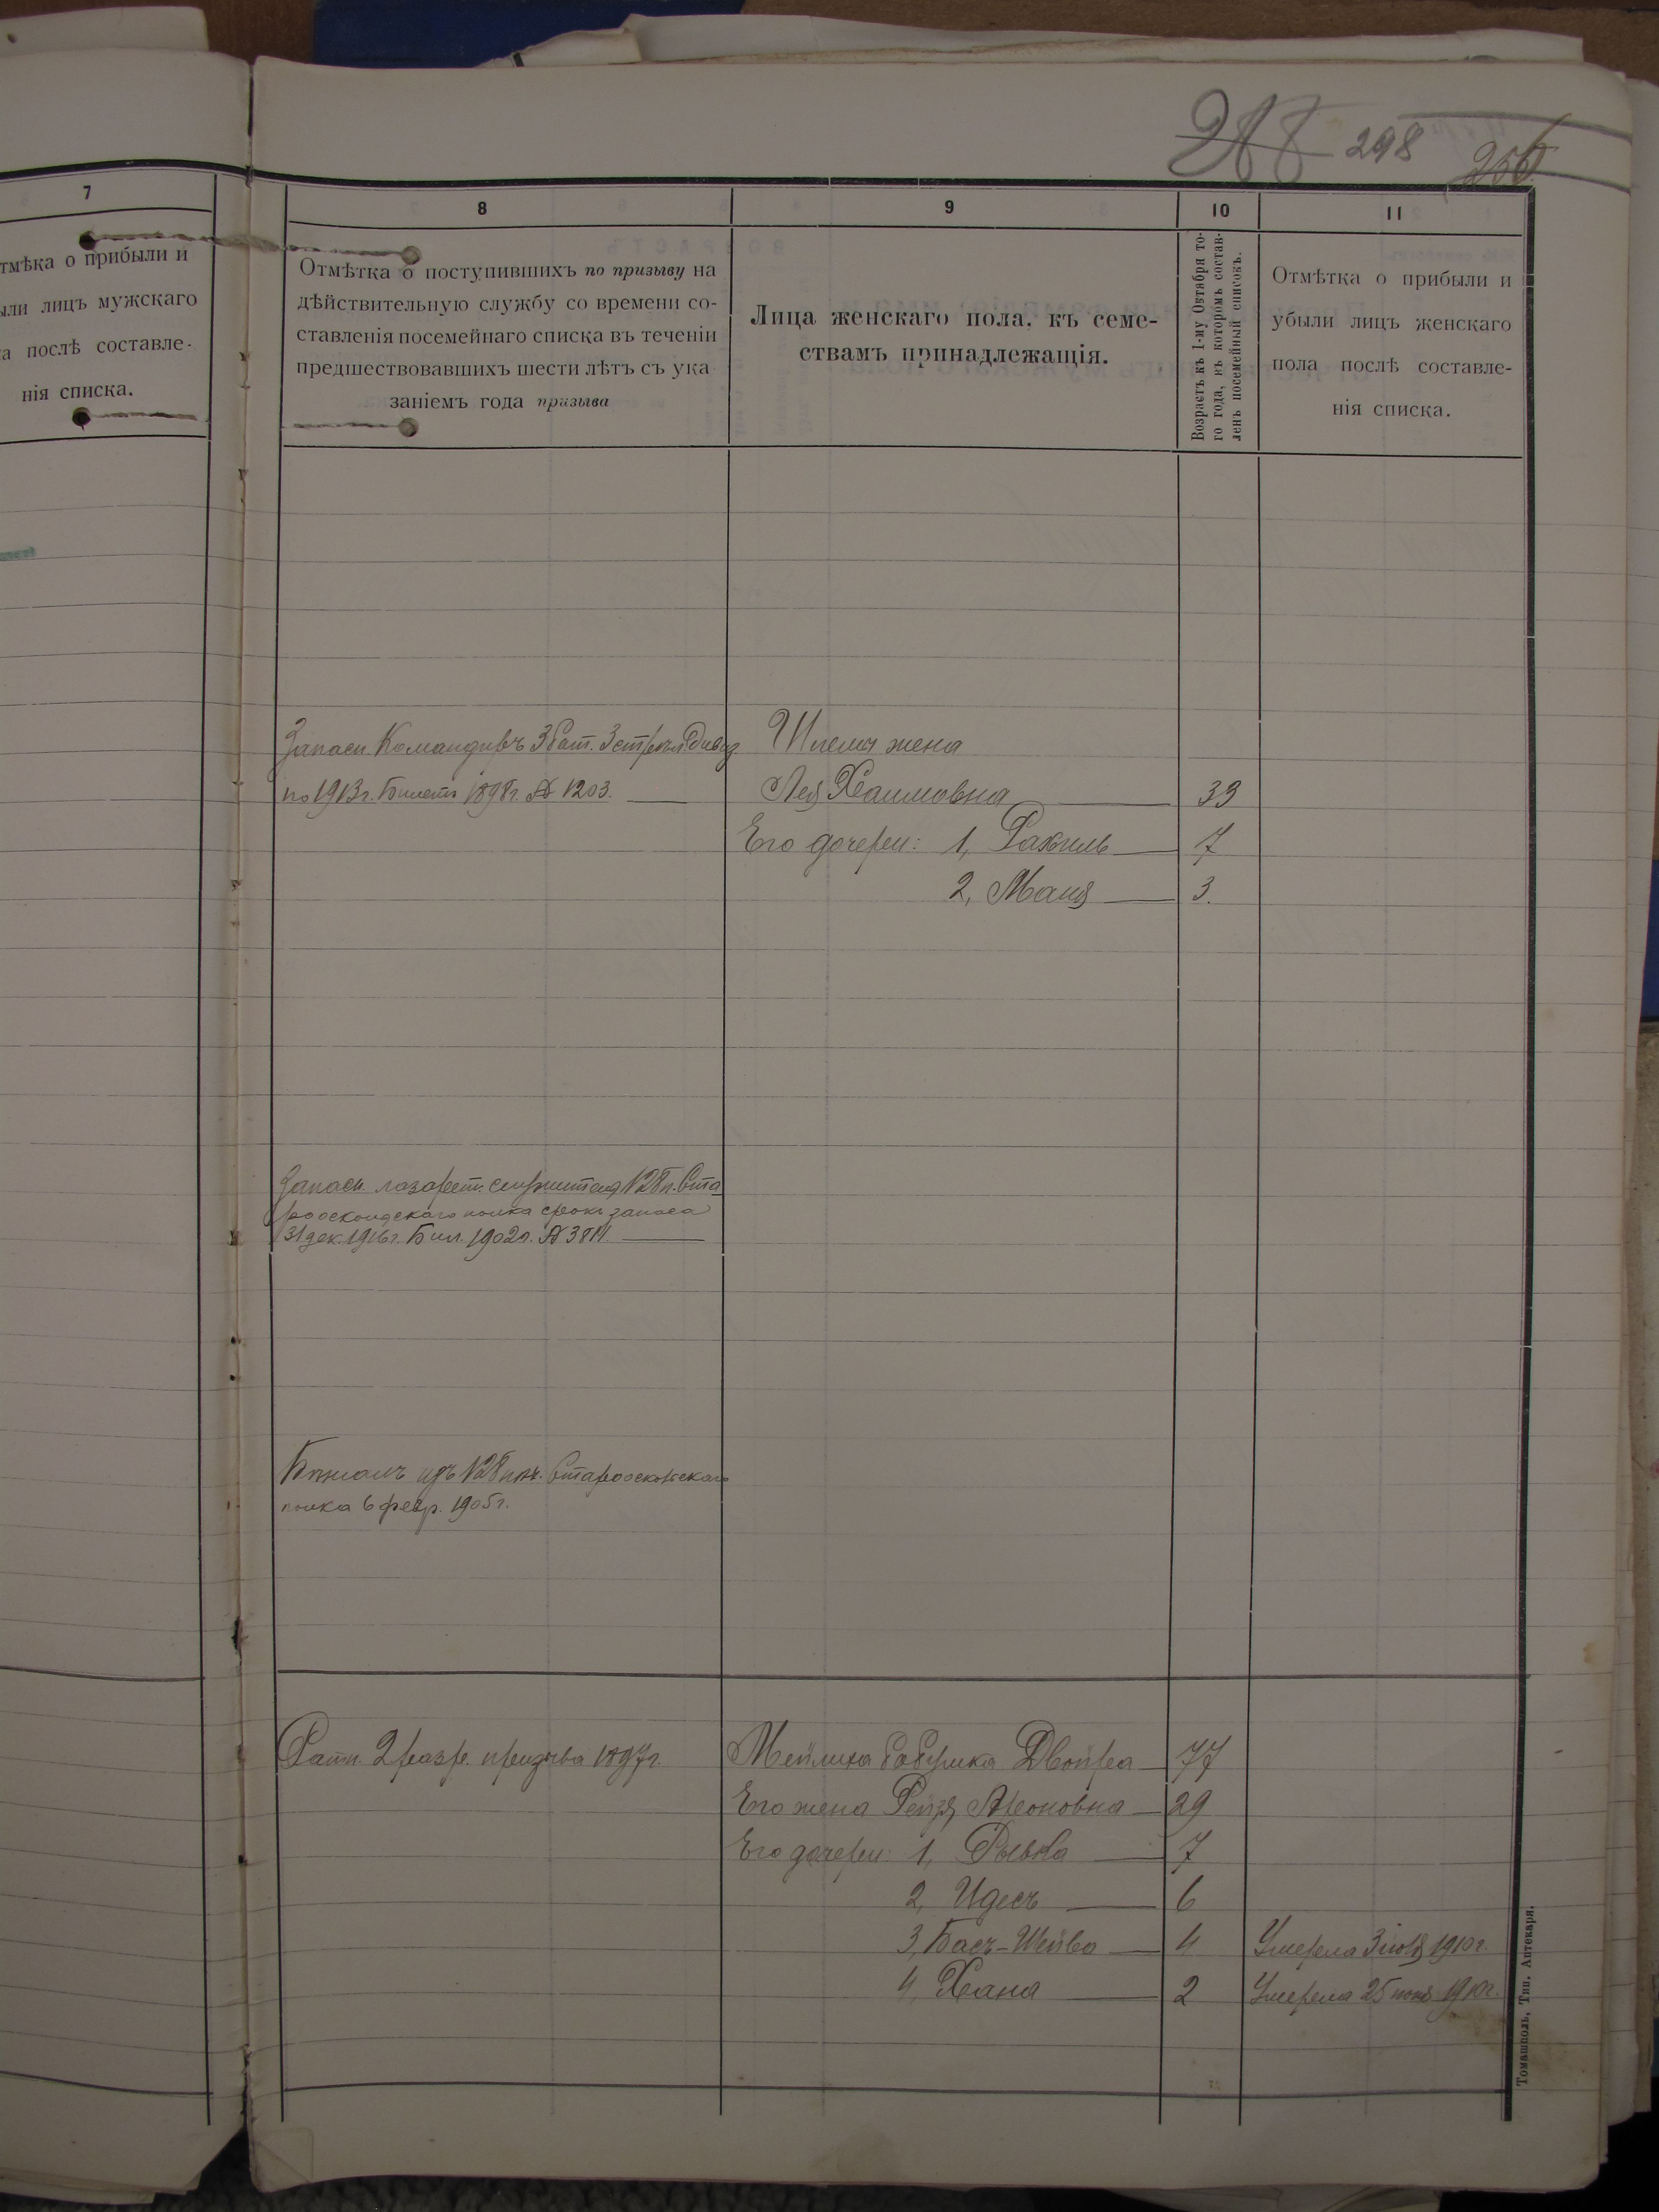 288 298 256
7
тмѣка о прибыли и
ыли лицъ мужскаго
а послѣ составле-
нія списка.
8
Отмѣтка о поступившихъ по призыву на
дѣйствительную службу со времени со-
ставленія посемейнаго списка въ теченіи
предшествовавшихъ шести лѣтъ съ ука
заніемъ года призыва
9
Лица женскаго пола, къ семе-
ствамъ принадлежащія.
10
Возрастъ къ 1-му Октября то-
го года, въ которомъ состав-
ленъ посемейный списокъ.
11
Отмѣтка о прибыли и
убыли лицъ женскаго
пола послѣ составле-
нія списка.
Запасн. 3 бат. 3
по 1913г. Билетъ 1898г. № 1203.
жена
Лея Хаимовна 39
Его дочери: 1, Рахиль 7
2, Маня 3.
Запасн. лазарет. служитель 128 п. Ста
рооскольскаго полка срокъ запаса
31 дек. 1916г. Бил. 1902г. № 3811.
изъ 128 пѣх. Старооскольскаго
полка 6 февр. 1905г.
Ратн. 2 разр. призыва 1897г.
Мейлиха бабушка Двойра 77
Его жена Рейзя Ароновна 29
Его дочери: 1, Рывка 7
2, Идесъ 6
3, Бася-Шейва 4 Умерла 3 1910г.
4, Хана 2 Умерла 25 1910г.
Томашполь, Тип. Аптекаря.